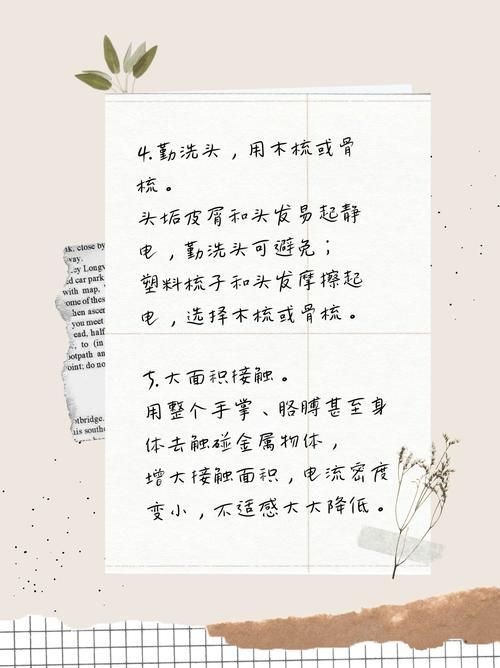 4.勤洗头，用木梳或骨
梳。
头垢皮屑和头发易起静
电，勤洗头可避免；
塑料梳子和头发摩擦起
电，选择木梳或骨梳。
5.大面积接触。
用整个手掌、胳膊甚至身
体去触碰金属物体，
增大接触面积，电流密度
变小，不适感大大降低。
close by
way.
ey Longw
d car park
with map,
ome of these
hen ascen
you meet
ead, half
, to (in
ootpath and
oint; do no
otbridge.
is southe